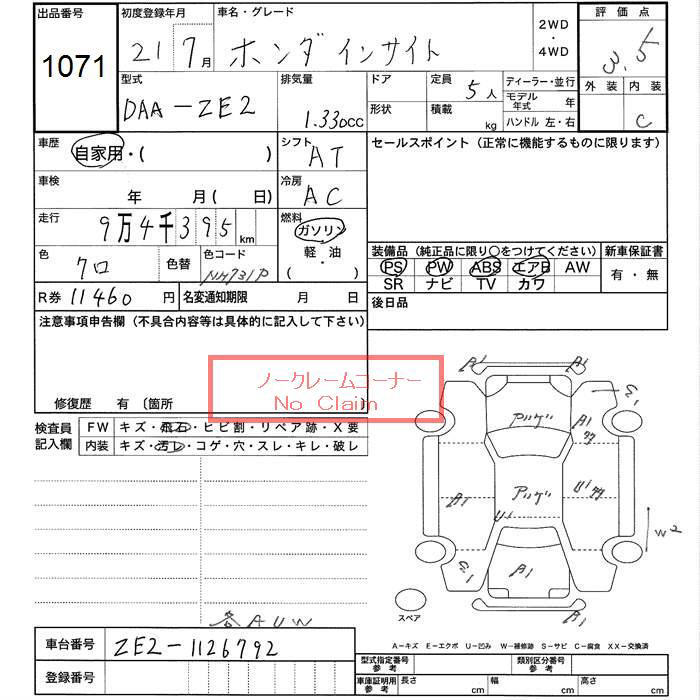 出品番号 初度登録年月 車名・グレード 2WD・4WD 評価点
1071 21 7月 ホンダ インサイト 3.5
型式 排気量 ドア 定員 ディーラー・並行 外装 内装
DAA-ZE2 1.33DCC 5人 モデル年式 年 C
形状 積載 kg ハンドル 左・右
車歴 自家用・( ) シフト AT セールスポイント(正常に機能するものに限ります)
車検 年 月( 日) 冷房 AC
走行 9万4千395km 燃料 ガソリン
軽・油
( )
色 クロ 色替 色コード NH731P
装備品(純正品に限り○をつけてください) 新車保証書
PS PW ABS エアB AW 有・無
SR ナビ TV カワ
R券 11460円 名変通知期限 月 日 後日品
注意事項申告欄(不具合内容等は具体的に記入して下さい)
ノークレームコーナー
No Claim
修復歴 有 〔箇所
検査員記入欄 FW キズ・飛石・ヒビ割・リペア跡・X要
内装 キズ・汚レ・コゲ・穴・スレ・キレ・破レ
A1 A1
アリゲ A1
アリゲ
A1 U1
U1
W2
A1
A1
スペア
各AUW
車台番号 ZE2-1126792
登録番号
A-キズ E-エクボ U-凹み W-補修跡 S-サビ C-腐食 XX-交換済
型式指定番号 参考 類別区分番号 参考
車庫証明用 参考 長さ cm 幅 cm 高さ cm